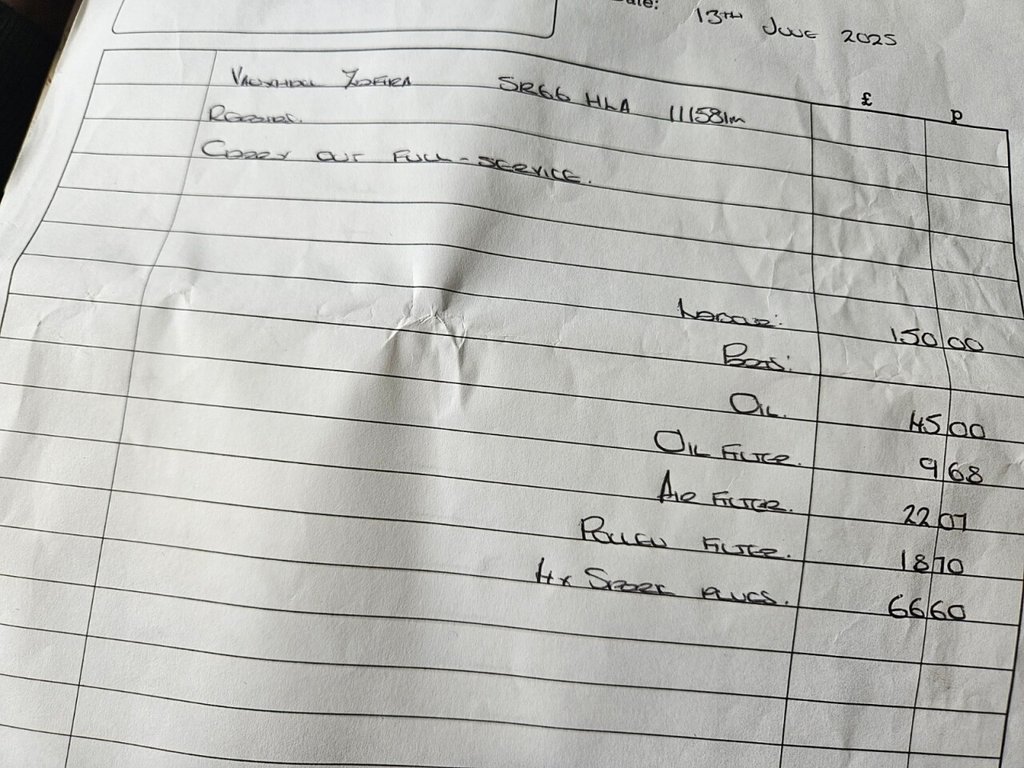 Date: 13TH JUNE 2025
£ P
VAUXHALL ZAFIRA SR66 HLA 111581m
REPAIRS.
CARRY OUT FULL-SERVICE.
LABOUR: 150 00
PARTS:
OIL. 45 00
OIL FILTER. 9 68
AIR FILTER. 22 07
POLLEN FILTER. 18 70
4x SPARK PLUGS. 66 60